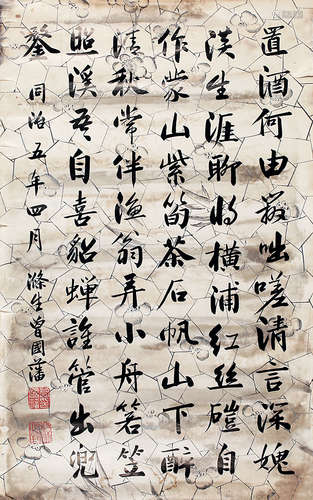 置酒何由辦咄嗟清言深媿
淡生涯聊將橫浦紅絲磑自
作蒙山紫筍茶石帆山下醉
清秋常伴漁翁弄小舟箬笠
照溪吾自喜貂蟬誰管出兜
鍪 同治五年四月 滌生曾國藩